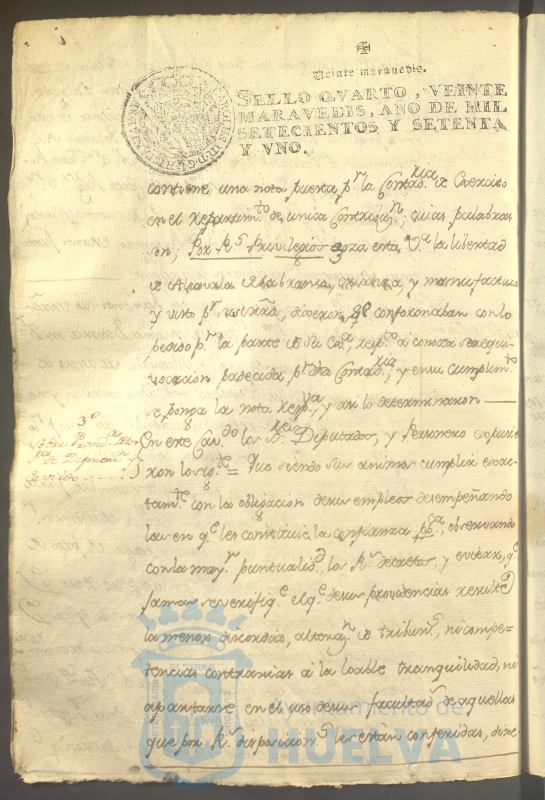 Veinte maravedis.
SELLO QVARTO, VEINTE
MARAVEDIS, AÑO DE MIL
SETECIENTOS Y SETENTA
Y VNO.
contiene una nota puesta pr. la Contadria de Exercito
en el repartimto. de unica Contribn., cuias palabras
son; Por Rs. Privilegios goza esta Va. la libertad
de Alcavala de labranza, crianza, y manufactura
y visto pr. sus srias., dixeron, qe conformaban con lo
pedido pr. la parte de su Ca. respto. a conocer la equi-
vocacion padecida pr. dha Contadria, y en su cumplimto.
se ponga la nota respva, y asi lo determinaron
3º
En este Cavdo los sres Diputados, y Personero expusie-
ron lo sigte = Que siendo sus animos cumplir exac-
tamte. con la obligacion de sus empleos desempeñando
las en qe. les constituie la confianza pca., observando
con la mayr. puntualidd. los Rs. decretos, y evitar, qe
jamas se verifiqe el qe. de sus providencias resulte
la menor discordia, alterazn. de tribuns., ni compe-
tencias contrarias a la loable tranquilidad, ni
apartarse en el uso de sus facultads. de aquellas
que por Rs. disposicions. les estan conferidas, dixe-
Ayuntamiento de
HUELVA